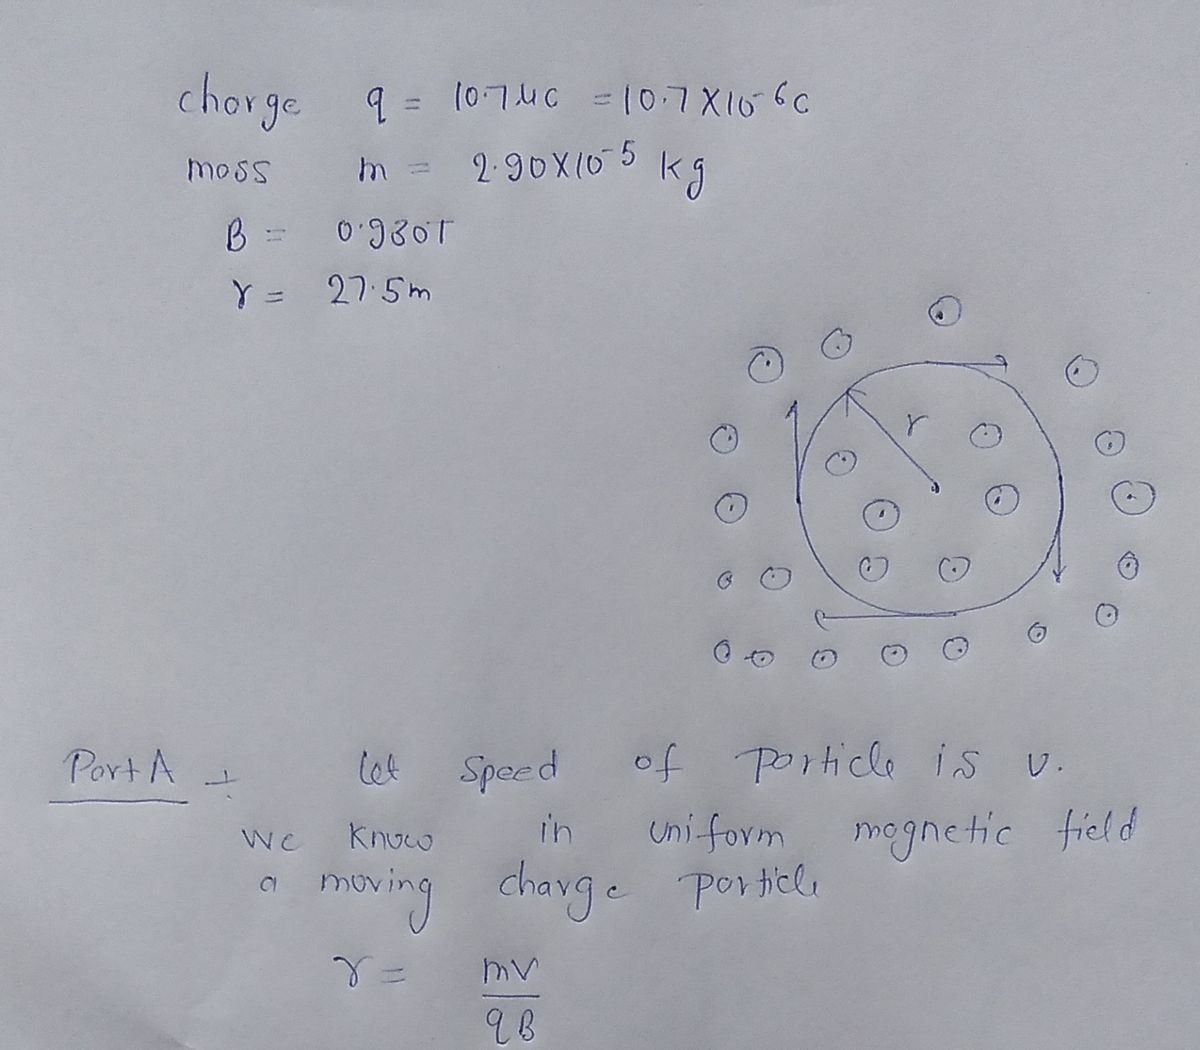 charge q = 10.7 μC = 10.7 X 10⁻⁶ C
moss m = 2.90X10⁻⁵ kg
B = 0.930T
r = 27.5m
r
Part A ÷ let speed of particle is v.
we know in uniform magnetic field
a moving charge particle
r = mv
qB